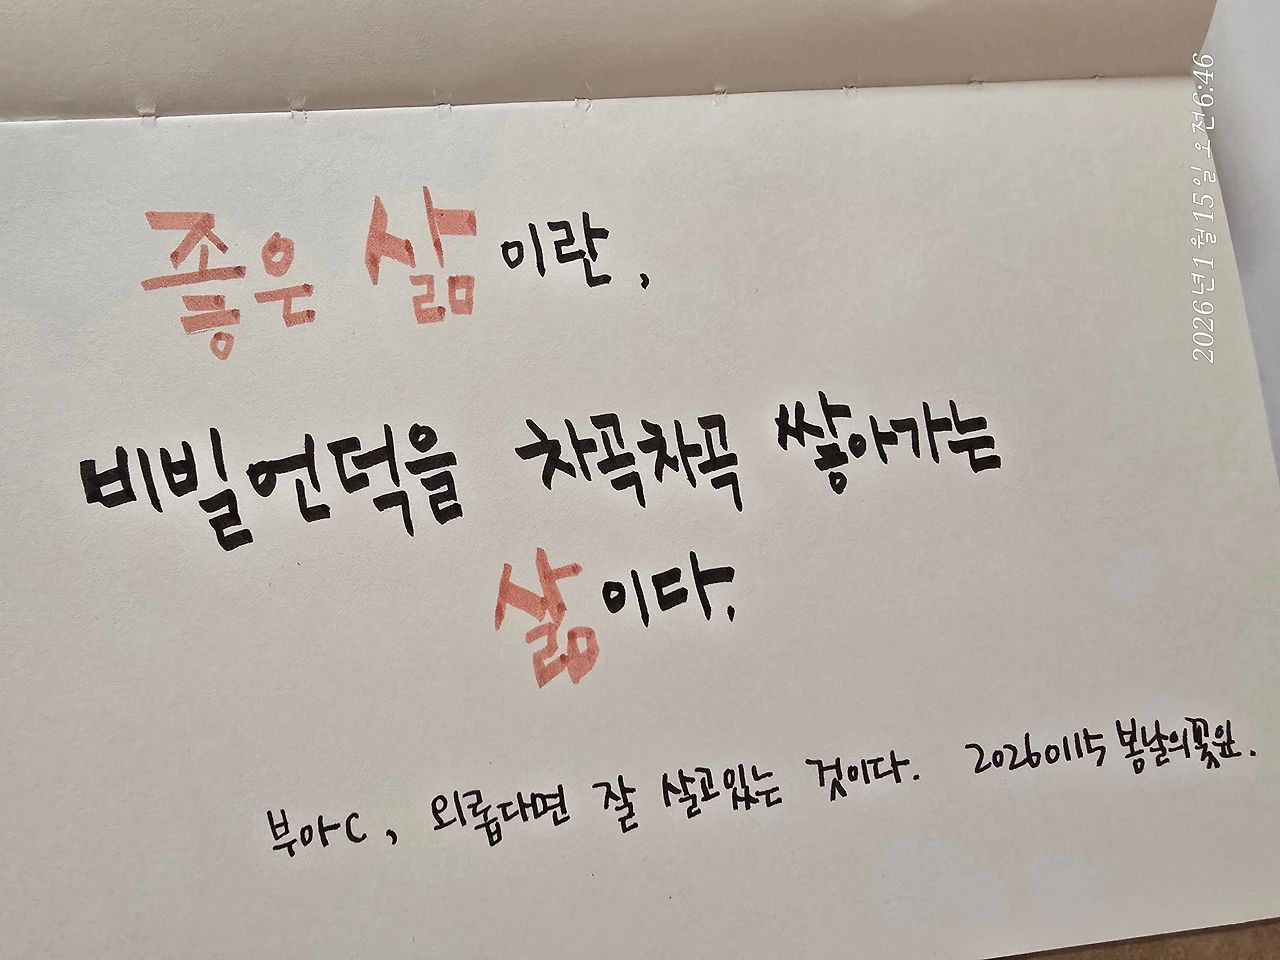 좋은 삶이란,
비빌언덕을 차곡차곡 쌓아가는
삶이다.
부아C, 외롭다면 잘 살고있는 것이다. 20260115 봄날의꽃잎.
2026년 1월 15일 오전 6:46